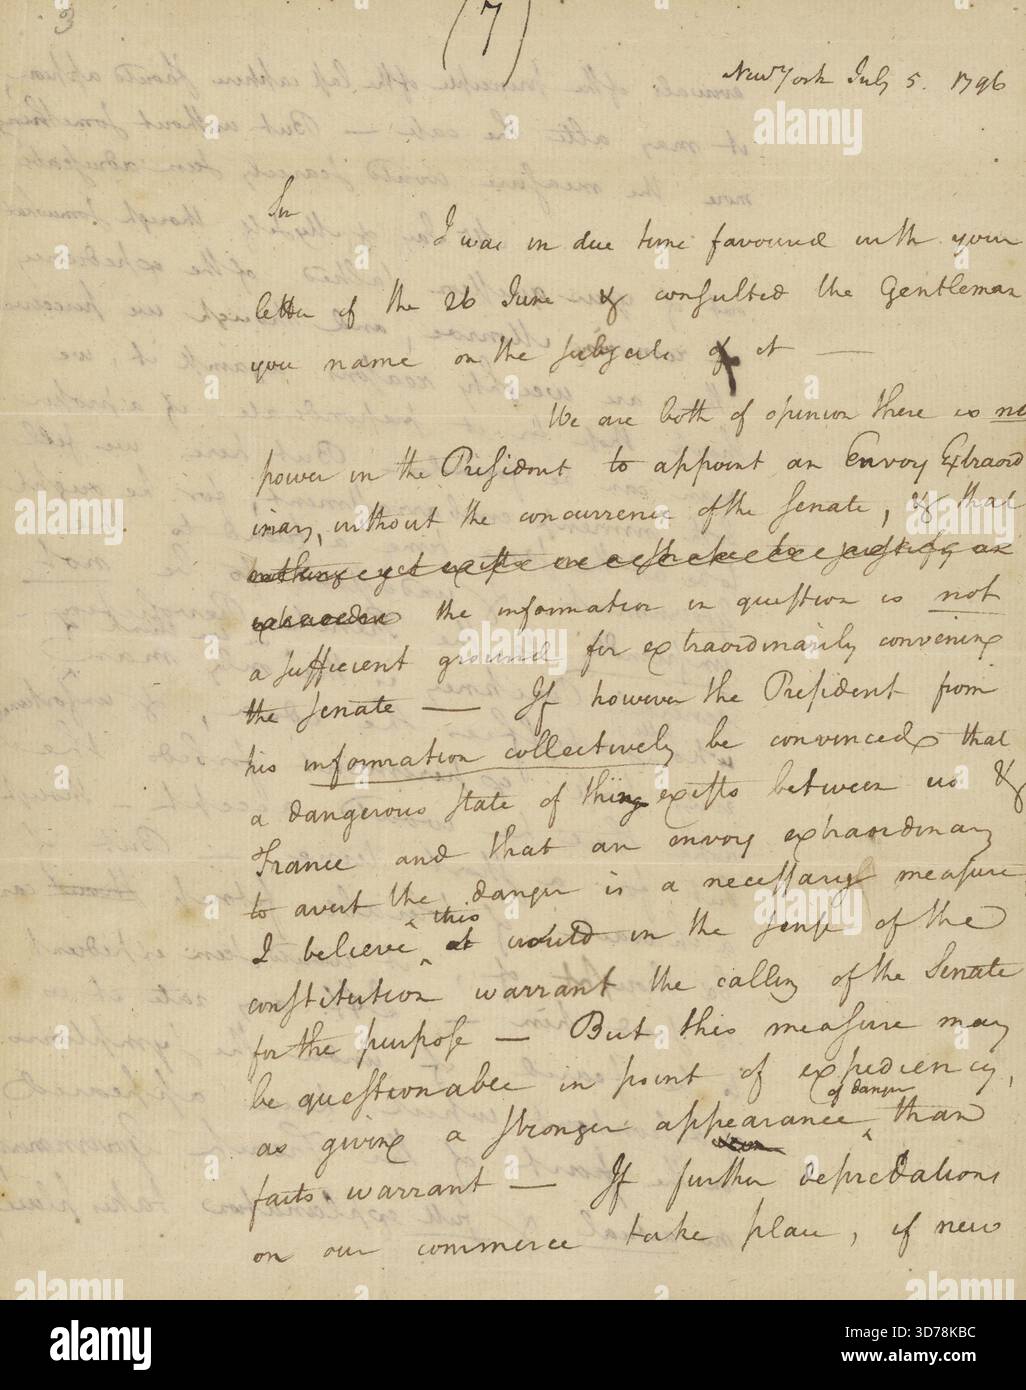 3
(7)
New York July 5. 1796
Sir
I was in due time favoured with your
letter of the 26 June & consulted the Gentleman
you name on the subject of it —
We are both of opinion there is no
power in the President to appoint an Envoy Extraord
inary, without the concurrence of the Senate, & that
the information in question is not
a sufficient ground for extraordinarily convening
the Senate — If however the President from
his information collectively be convinced that
a dangerous state of things exists between us &
France and that an envoy extraordinary
to avert the danger is a necessary measure
I believe this would in the sense of the
constitution warrant the calling of the Senate
for the purpose — But this measure may
be questionable in point of expediency,
as giving a stronger appearance of danger than
facts warrant — If further depredations
on our commerce take place, if new
alamy
alamy
alamy
alamy
alamy
alamy
alamy
alamy
alamy
alamy
alamy
alamy
Image ID: 3D78KBC
www.alamy.com